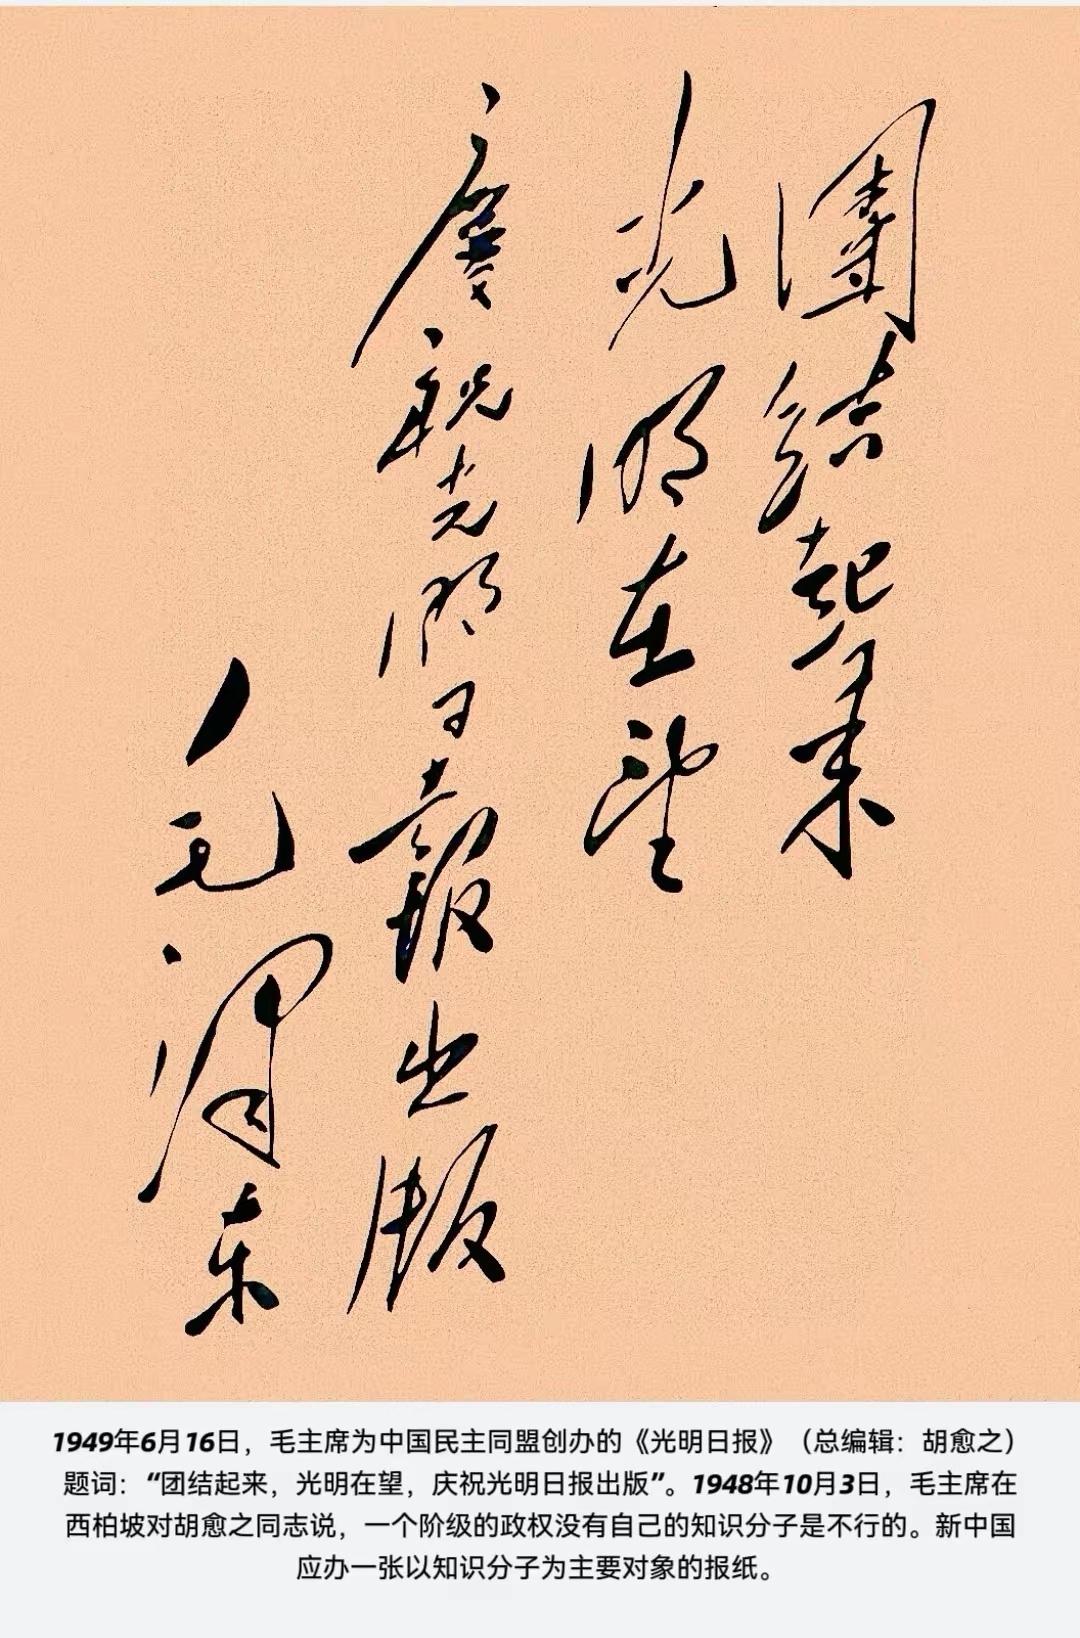 團結起来
光明在望
慶祝光明日報出版
毛澤东
1949年6月16日，毛主席为中国民主同盟创办的《光明日报》（总编辑：胡愈之）
题词：“团结起来，光明在望，庆祝光明日报出版”。1948年10月3日，毛主席在
西柏坡对胡愈之同志说，一个阶级的政权没有自己的知识分子是不行的。新中国
应办一张以知识分子为主要对象的报纸。